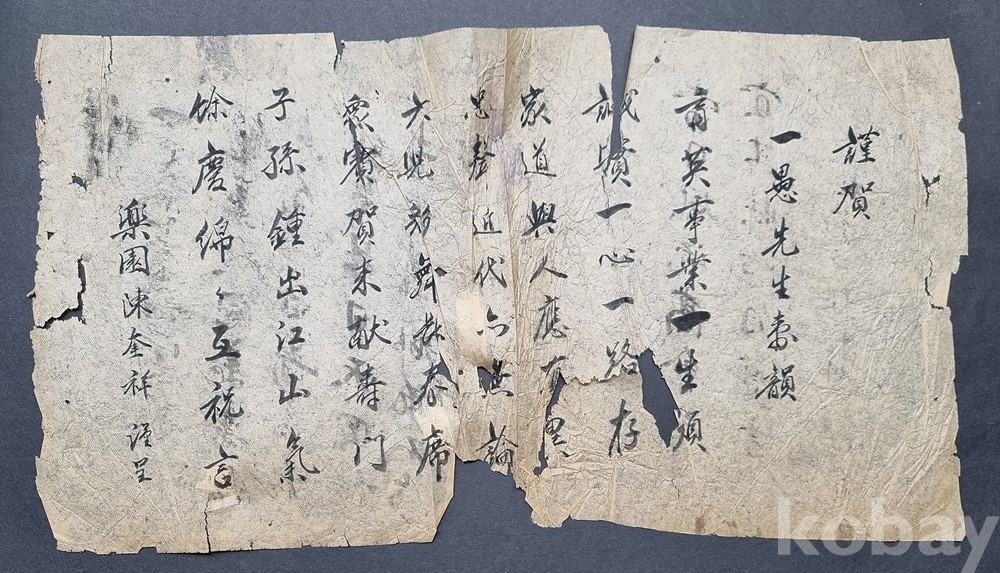 謹賀
一愚先生壽韻
育英事業一生須
誠一心一路存
家道與人應有異
忠聲近代亦無論
六兒彩舞春席
衆賓賀來献壽門
子孫鍾出江山氣
餘慶綿〻互祝言
樂園陳奎祥 謹呈
kobay